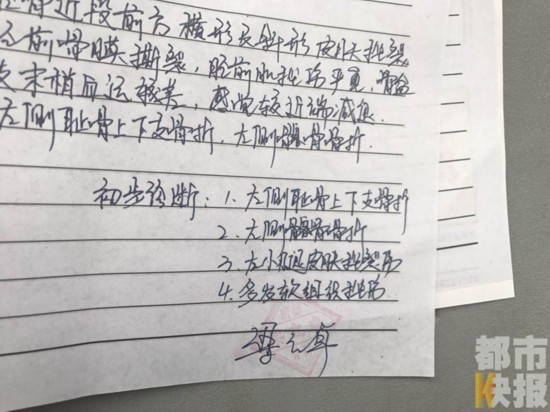 骨近段前方横形长斜形皮肤挫裂
前骨膜撕裂，胫前肌挫伤平夏，
末梢血运较差，感觉较近端减低.
左侧耻骨上下支骨折，左侧髂骨骨折.
初步诊断：1. 左侧耻骨上下支骨折
2. 左侧髂骨骨折
3. 左小腿皮肤挫裂伤
4. 多发软组织挫伤
都市
快报